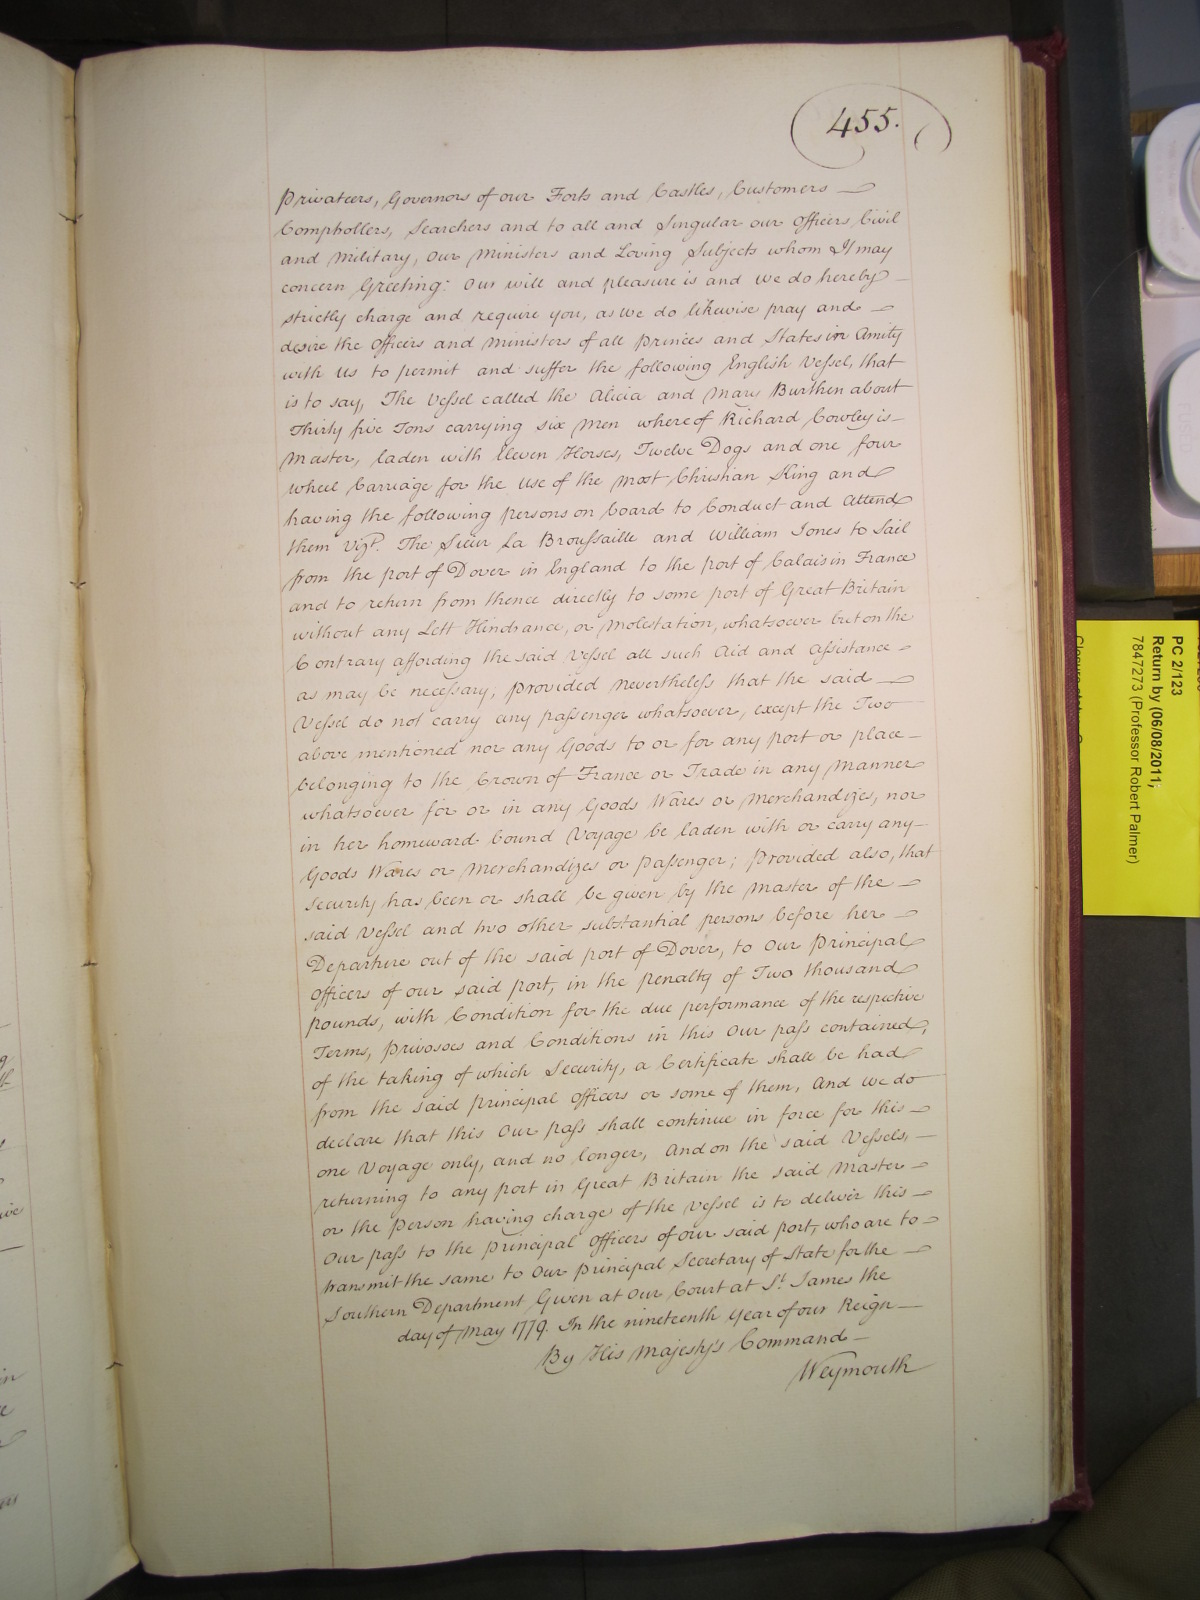 455.
Privateers, Governors of our Forts and Castles, Customers
Comptrollers, Searchers and to all and Singular our Officers Civil
and Military, our Ministers and Loving Subjects whom It may
concern Greeting: Our will and pleasure is and we do hereby
strictly charge and require you, as we do likewise pray and
desire the Officers and Ministers of all Princes and States in Amity
with us to permit and suffer the following English Vessel, that
is to say, The Vessel called the Alicia and Mary Burthen about
Thirty five Tons carrying six Men whereof Richard Cowley is
Master, laden with Eleven Horses, Twelve Dogs and one four
wheel Carriage for the use of the most Christian King and
having the following persons on board to Conduct and Attend
them vizt. The Sieur La Broussaille and William Jones to Sail
from the port of Dover in England to the port of Calais in France
and to return from thence directly to some port of Great Britain
without any Lett Hindrance, or Molestation, whatsoever but on the
Contrary affording the said Vessel all such Aid and Assistance
as may be necessary, provided nevertheless that the said
Vessel do not carry any passenger whatsoever, except the Two
above mentioned nor any Goods to or for any port or place
belonging to the Crown of France or Trade in any Manner
whatsoever for or in any Goods Wares or Merchandizes, nor
in her homeward bound Voyage be laden with or carry any
Goods Wares or Merchandizes or passenger; Provided also, that
security has been or shall be given by the Master of the
said Vessel and two other substantial persons before her
Departure out of the said port of Dover, to Our Principal
Officers of our said port, in the Penalty of Two thousand
pounds, with Condition for the due performance of the respective
Terms, Privosoes and Conditions in this Our pass contained,
of the taking of which Security, a Certificate shall be had
from the said principal Officers or some of them, And we do
declare that this Our pass shall continue in force for this
one Voyage only, and no longer, And on the said Vessels,
returning to any port in Great Britain the said Master
or the Person having charge of the Vessel is to deliver this
Our pass to the Principal Officers of our said port, who are to
transmit the same to Our Principal Secretary of State for the
Southern Department Given at Our Court at St. James the
day of May 1779. In the nineteenth Year of our Reign
By His Majesty's Command
Weymouth
PC 2/123
Return by (06/08/2011;
7847273 (Professor Robert Palmer)